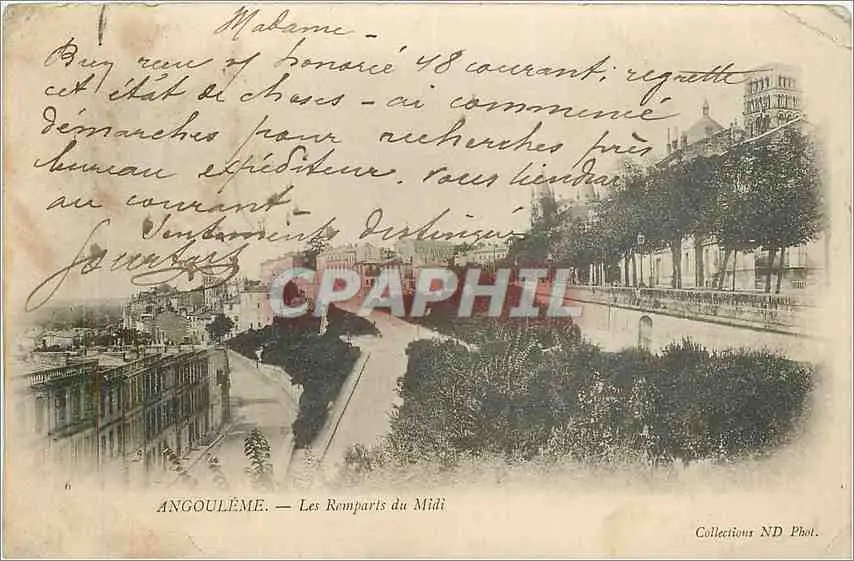 Madame -
Bien reçu v/ honorée 18 courant, regrette
cet état de choses - ai commencé
démarches pour recherches près
bureau expéditeur. Vous tiendrai
au courant -
Sentiments distingués
CPARPHIL
6
ANGOULÊME. — Les Remparts du Midi
Collections ND Phot.